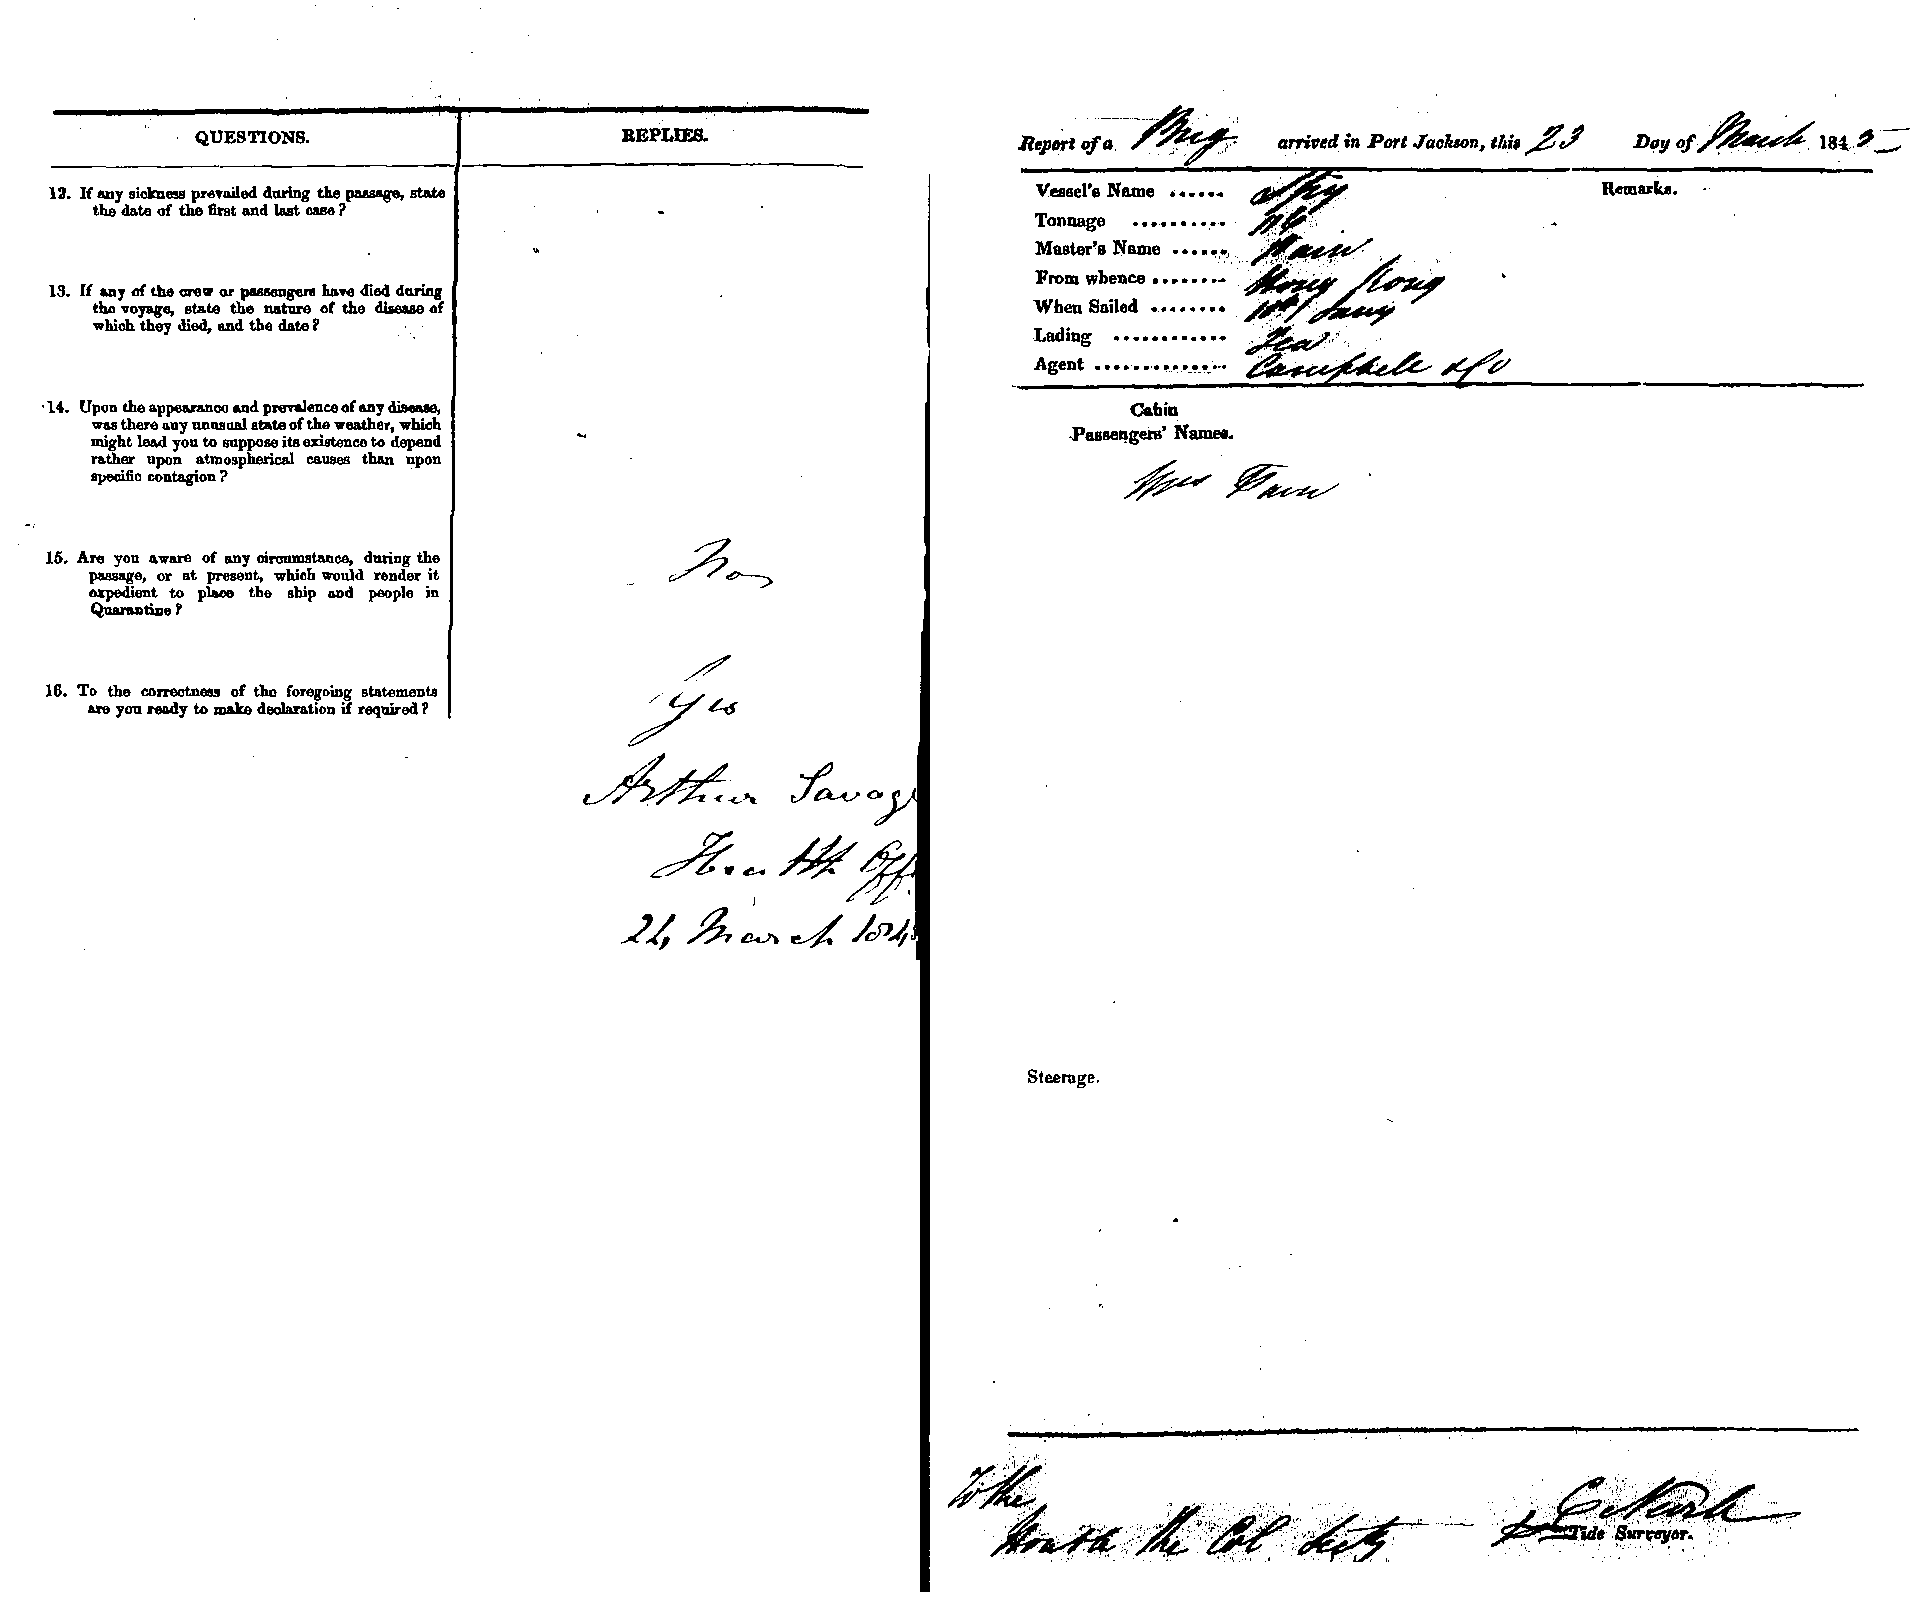 QUESTIONS.
REPLIES.
12. If any sickness prevailed during the passage, state
the date of the first and last case?
13. If any of the crew or passengers have died during
the voyage, state the nature of the disease of
which they died, and the date?
14. Upon the appearance and prevalence of any disease,
was there any unusual state of the weather, which
might lead you to suppose its existence to depend
rather upon atmospherical causes than upon
specific contagion?
15. Are you aware of any circumstance, during the
passage, or at present, which would render it
expedient to place the ship and people in
Quarantine?
No
16. To the correctness of the foregoing statements
are you ready to make declaration if required?
Yes
Arthur Savag
Health Off
24 March 184
Report of a Brig arrived in Port Jackson, this 23 Day of March 1845
Remarks.
Vessel's Name ...... Spy
Tonnage ..........
Master's Name ......
From whence ........ Hong Kong
When Sailed ........ Jany
Lading ............ Tea
Agent .............. Campbell & Co
Cabin
Passengers' Names.
Mrs
Steerage.
To the
Honble the Col Secty
Tide Surveyor.